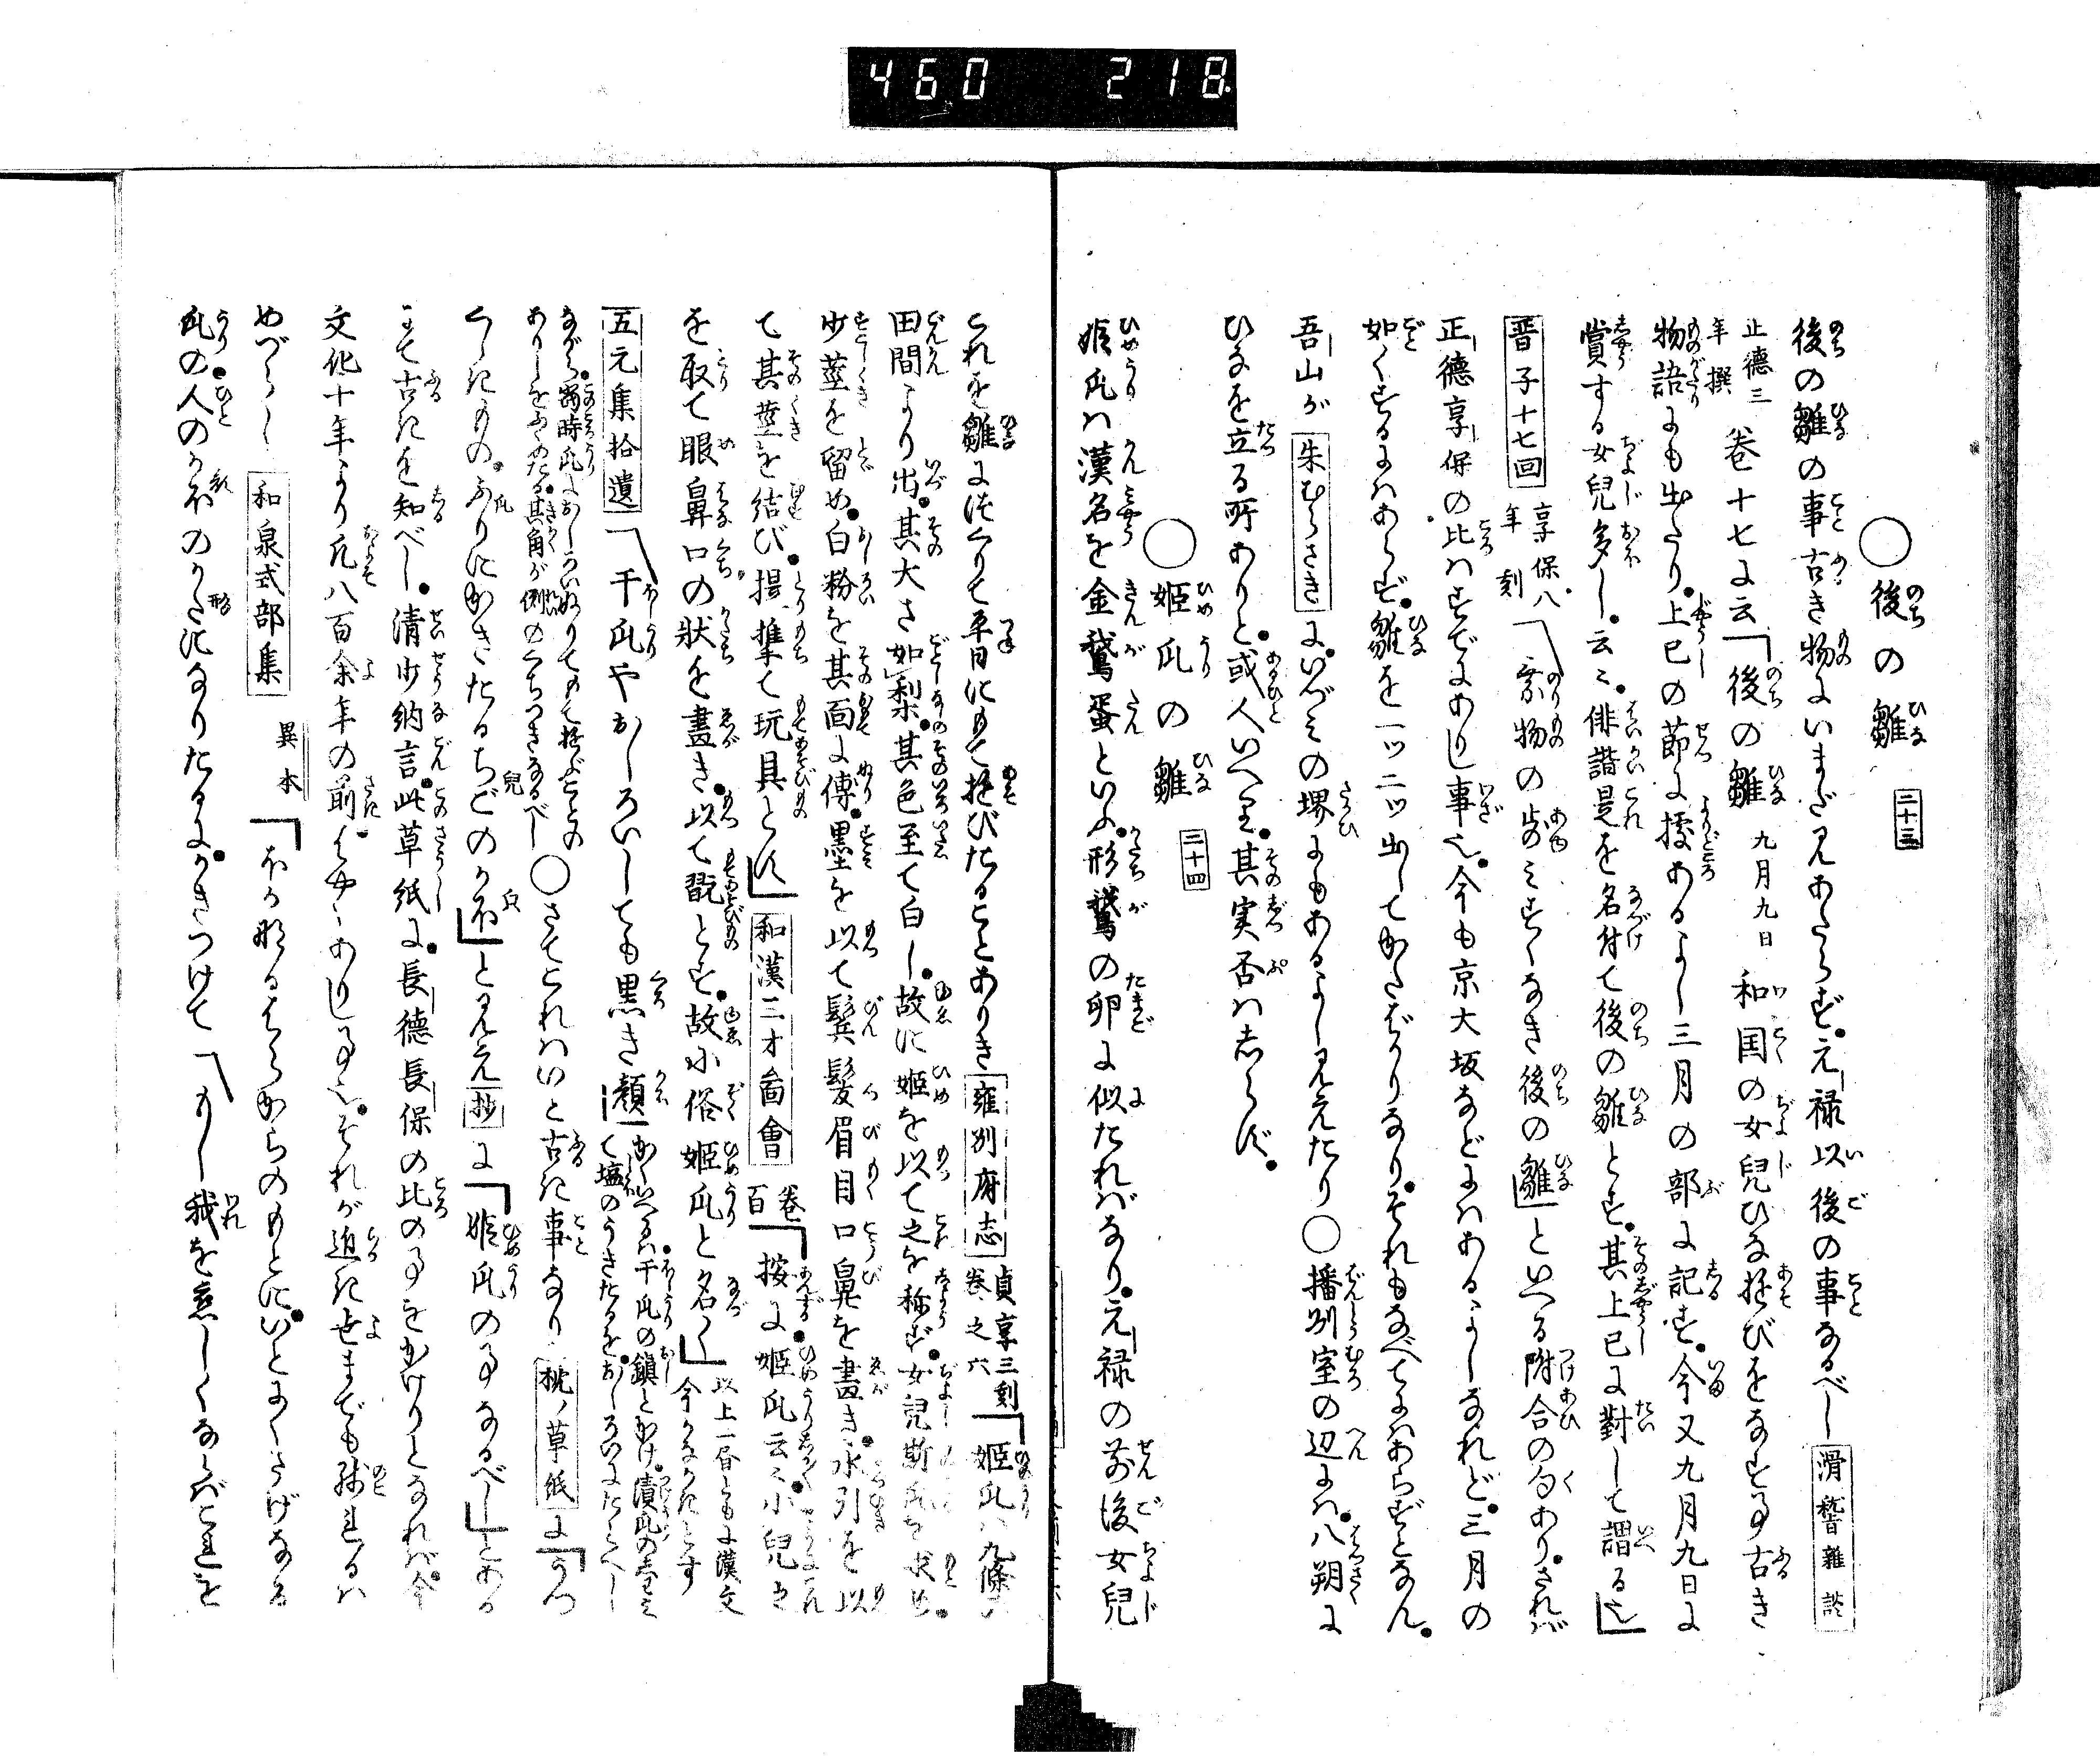 460 218
○後の雛 二十三
後の雛の事古き物にいまだ見あたらず。元禄以後の事なるべし 滑稽雑談
正徳三年撰 巻十七に云「後の雛 九月九日 和国の女児ひな遊びをなする事古き
物語にも出たり。上巳の節に拠あるよし三月の部に記す。今又九月九日に
賞する女児多し。云々。俳諧是を名付て後の雛とす。其上巳に対して謂る也」
晋子十七回 享保八年刻 「乗物の歩みすくなき後の雛」といへる附合の句あり。されば
正徳享保の比はすでにありし事也。今も京大坂などにはあるよしなれど。三月の
如くするにはあらず。雛を一ツ二ツ出してかざるばかりなり。それもなべてにはあらずとなん。
吾山が 朱むらさき に。いづみの堺にもあるよし見えたり○播州室の辺には。八朔に
ひなを立る所ありと。或人いへり。其実否はしらず。
○姫瓜の雛 二十四
姫瓜は漢名を金鵞蛋といふ。形鵞の卵に似たればなり。元禄の前後女児
これを雛につくりて平日にもて遊びたることありき 雍州府志 貞享三刻巻之六 「姫瓜は九條の
田間より出。其大さ如梨。其色至て白し。故に姫を以て之を称ず。女児斯瓜を求め。
少茎を留め。白粉を其面に傅。墨を以て鬢髪眉目口鼻を畫き。水引を以
て其茎を結び。提携て玩具とす」 和漢三才圖會 巻百 「按に姫瓜云々。小児
を取て眼鼻口の状を畫き。以て翫とす。故に俗姫瓜と名く」 以上二書ともに漢文今かなにうつす
五元集拾遺 「干瓜やおしろいしても黒き顔」 かくいへるは。干瓜の鎮とかけ。漬瓜の
て塩のうきたるを。おしろいにたとへし
ながら。當時瓜におしろいぬりてもて遊ぶことの
ありしをふくめたる。其角が例のくちつきなるべし ○さてこれはいと古き事なり 枕ノ草紙 に「うつ
くしきもの。ふりにかきたるちごのかほ」と見え 抄 に「姫瓜の事なるべし」とある
にて古きを知べし。清少納言。此草紙に。長徳長保の比の事をかけりとなれば。今
文化十年より凡八百余年の前。はやくありし事也。それが近き世までも残れるは
めづらし 和泉式部集 異本 「ほか那るはらからのもとに。いとにくさげなる
瓜の人のかほのかたになりたるに。かきつけて「もし我を恋しくならばこれを